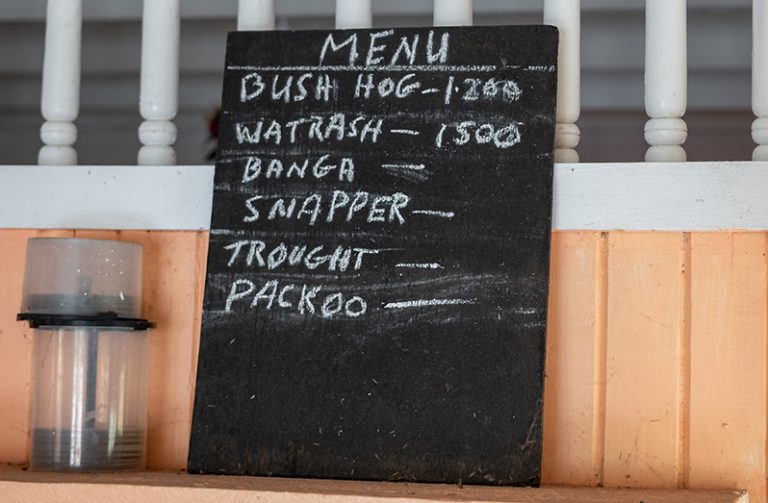 MENU
BUSH HOG - 1.200
WATRASH — 1500
BANGA —
SNAPPER —
TROUGHT —
PACKOO —